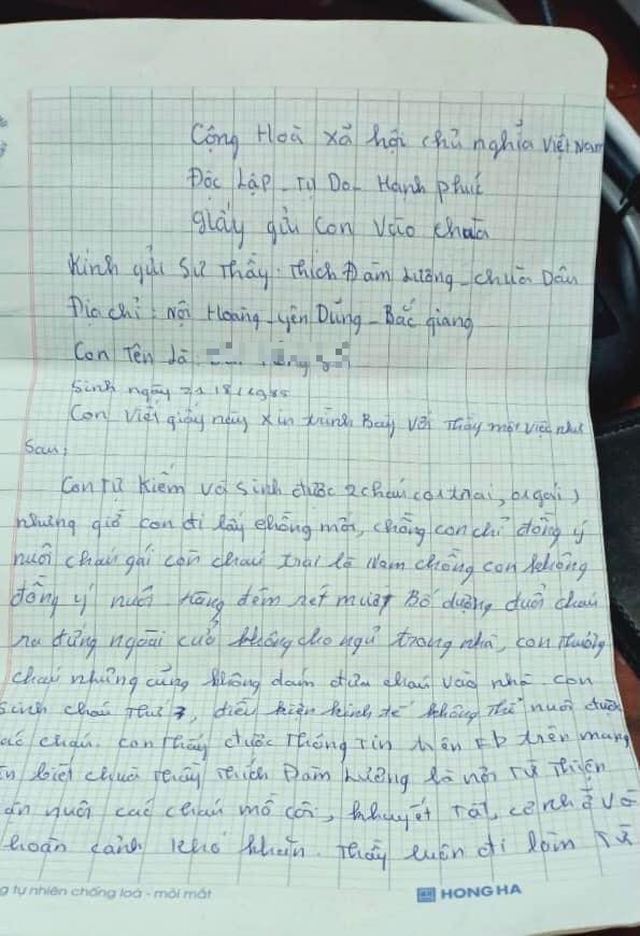 Cộng Hoà xã hội chủ nghĩa Việt Nam
Độc Lập - Tự Do - Hạnh phúc
giấy gửi con vào chùa
Kính gửi Sư Thầy. Thích Đàm Lương - chùa Dân
Địa chỉ: Nội Hoàng - Yên Dũng - Bắc giang
Con Tên là
Sinh ngày
Con viết giấy này xin trình Bày với Thầy một việc như
Sau;
Con Tự Kiếm và sinh được 2 cháu (01 trai, 01 gái)
nhưng giờ con đi lấy chồng mới, chồng con chỉ đồng ý
nuôi cháu gái còn cháu trai là Nam chồng con không
đồng ý nuôi hàng đêm rét mướt Bố dượng đuổi cháu
ra đứng ngoài cửa không cho ngủ trong nhà, con thương
cháu nhưng cũng không dám đưa cháu vào nhà. con
sinh cháu Thứ 3, điều kiện kinh tế không Thể nuôi được
các cháu. con thấy được Thông Tin trên Fb trên mạng
biết chùa Thầy Thích Đàm Lương là nơi Từ Thiện
nuôi các cháu mồ côi, khuyết Tật, cơ nhỡ và
hoàn cảnh khó khăn. Thầy luôn đi làm Từ
g tự nhiên chống loà - mỏi mắt
HONG HA